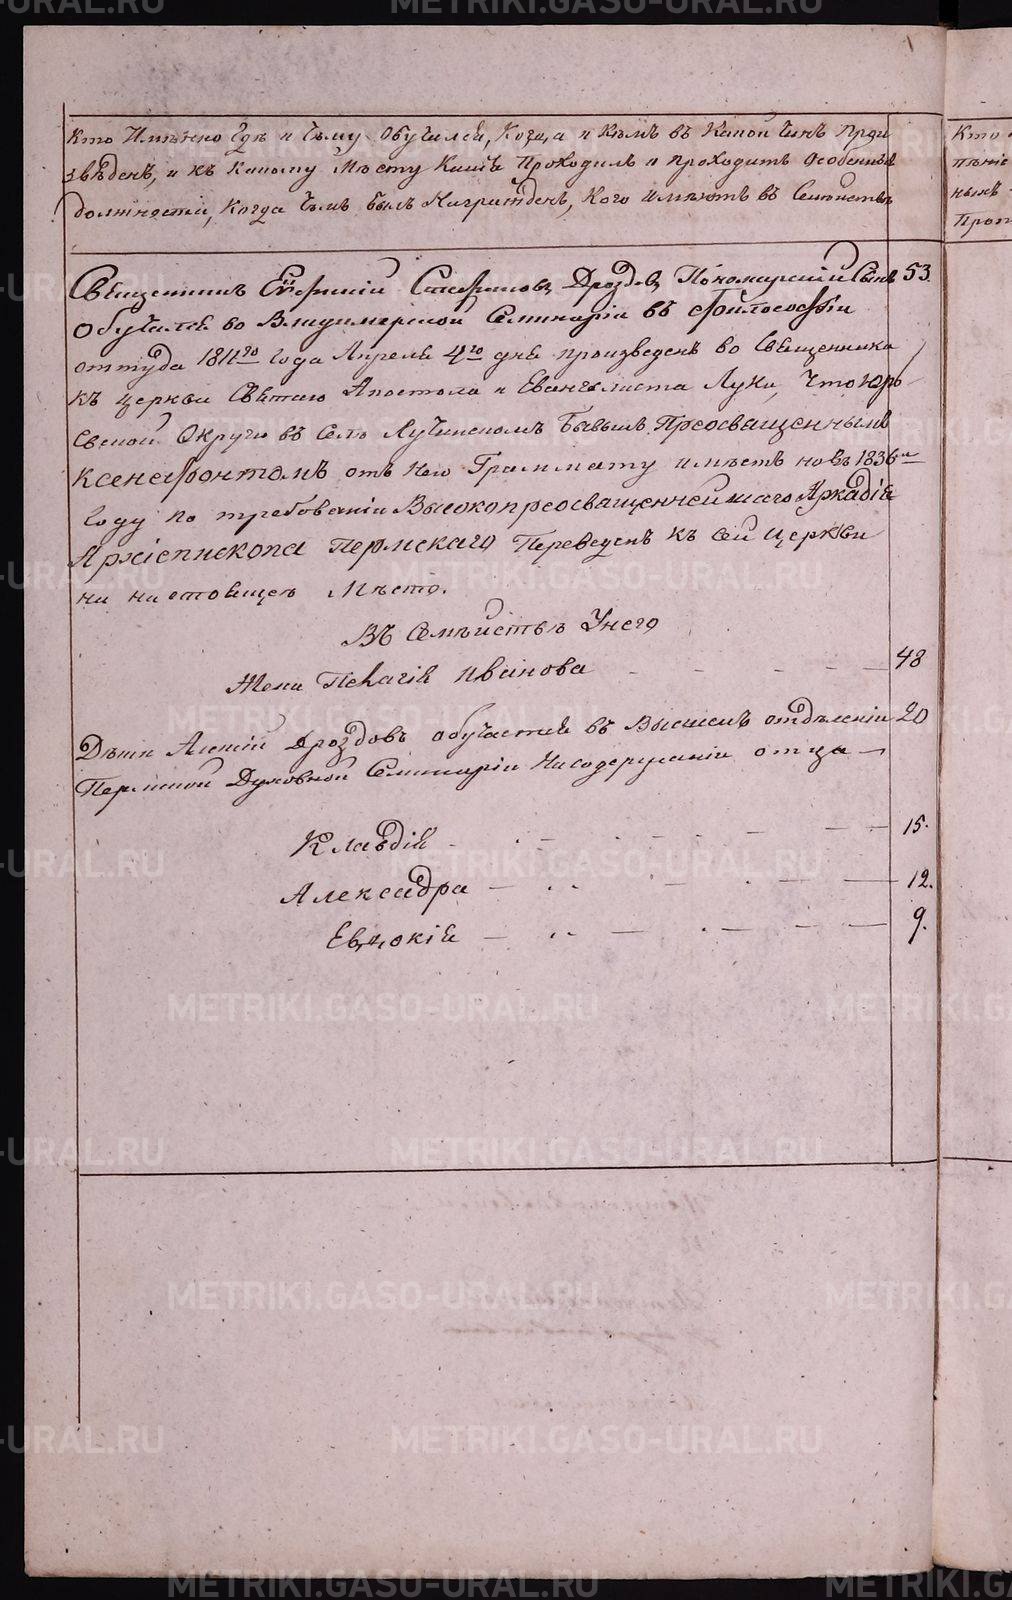 Кто Имянно Где и Чему Обучался, Когда и Кемъ въ Какой Чинъ Прои
зведенъ, и къ Какому Мѣсту Какія Проходилъ и проходитъ Особенныя
должности, Когда Чѣмъ былъ Награжденъ, Кого имѣетъ въ Семействѣ
Священникъ Стефановъ Дроздовъ Пономарскій Сынъ 53.
Обучался во Владимерской Семинаріи въ Философіи
оттуда 1811го Года Апреля 4го дня произведенъ во Священника
къ церкви Святаго Апостола и Евангелиста Луки, Что Юрь
евской Округи въ Селѣ Лучинскомъ Бывшимъ Преосвященнымъ
Ксенофонтомъ отъ Него Граммату имѣетъ но въ 1836м
Году по требованію Высокопреосвященнейшаго Аркадія
Архіепископа Пермскаго Переведенъ къ сей Церкви
на настоящее Мѣсто.
Въ Семѣйствѣ Унего
Жена Пелагія Иванова 48
Дѣти Алексій Дроздовъ обучается въ Высшемъ отдѣленіи 20
Пермской Духовной Семинаріи Насодержаніи отца
Клавдія 15.
Александра 12.
Евдокія 9.
Кто
пѣніе
ныхъ
METRIKI.GASO-URAL.RU